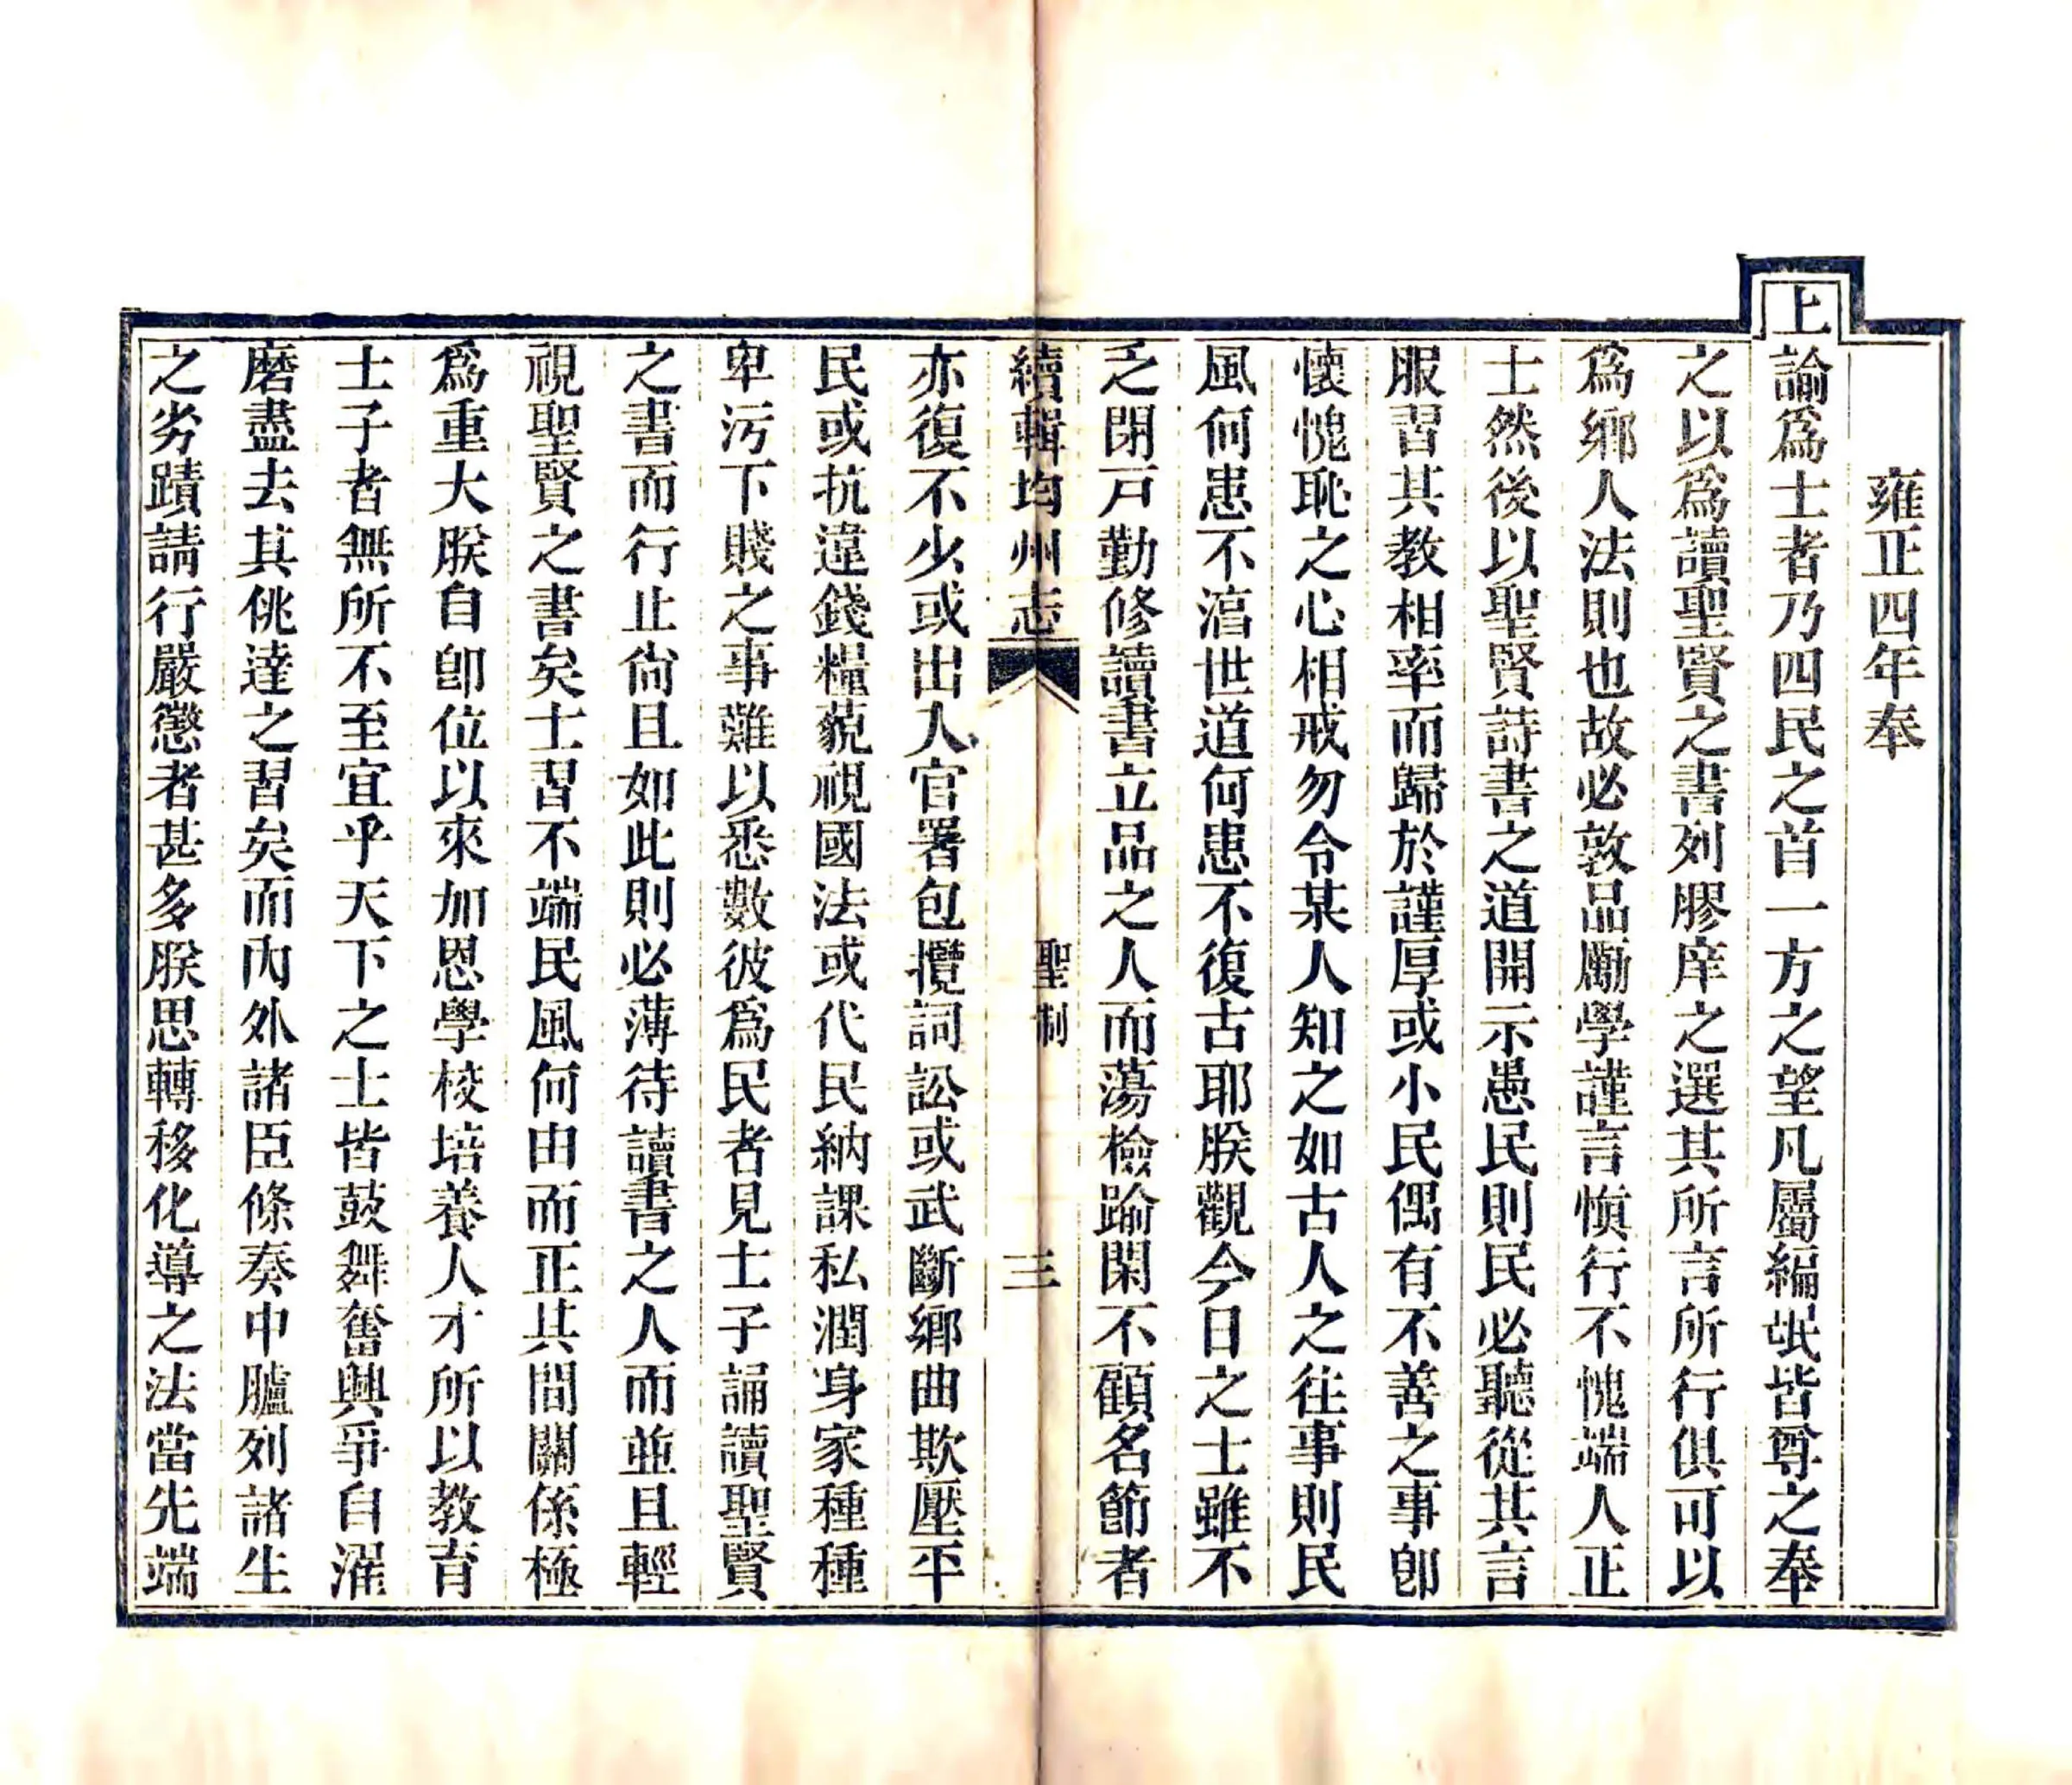 雍正四年奉
上諭爲士者乃四民之首一方之望凡屬編氓皆尊之奉
之以爲讀聖賢之書列膠庠之選其所言所行俱可以
爲鄉人法則也故必敦品勵學謹言慎行不愧端人正
士然後以聖賢詩書之道開示愚民則民必聽從其言
服習其教相率而歸於謹厚或小民偶有不善之事卽
懷愧恥之心相戒勿令某人知之如古人之往事則民
風何患不滈世道何患不復古耶朕觀今日之士雖不
乏閉戸勤修讀書立品之人而蕩檢踰閑不顧名節者
續輯均州志 聖制 三
亦復不少或出人官署包攬詞訟或武斷鄉曲欺壓平
民或抗違錢糧藐視國法或代民納課私潤身家種種
卑污下賤之事難以悉數彼爲民者見士子誦讀聖賢
之書而行止尙且如此則必薄待讀書之人而並且輕
視聖賢之書矣士習不端民風何由而正其間關係極
爲重大朕自卽位以來加恩學校培養人才所以教育
士子者無所不至宜乎天下之士皆鼓舞奮興爭自濯
磨盡去其佻達之習矣而內外諸臣條奏中臚列諸生
之劣蹟請行嚴懲者甚多朕思轉移化導之法當先端